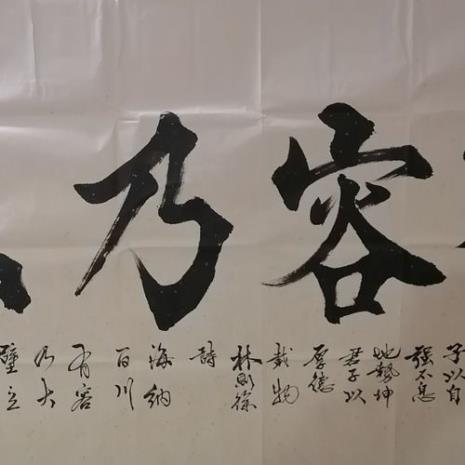 容乃
子以自
强不息
地勢坤
君子以
厚德
載物
林則徐
詩
海納
百川
有容
乃大
壁立